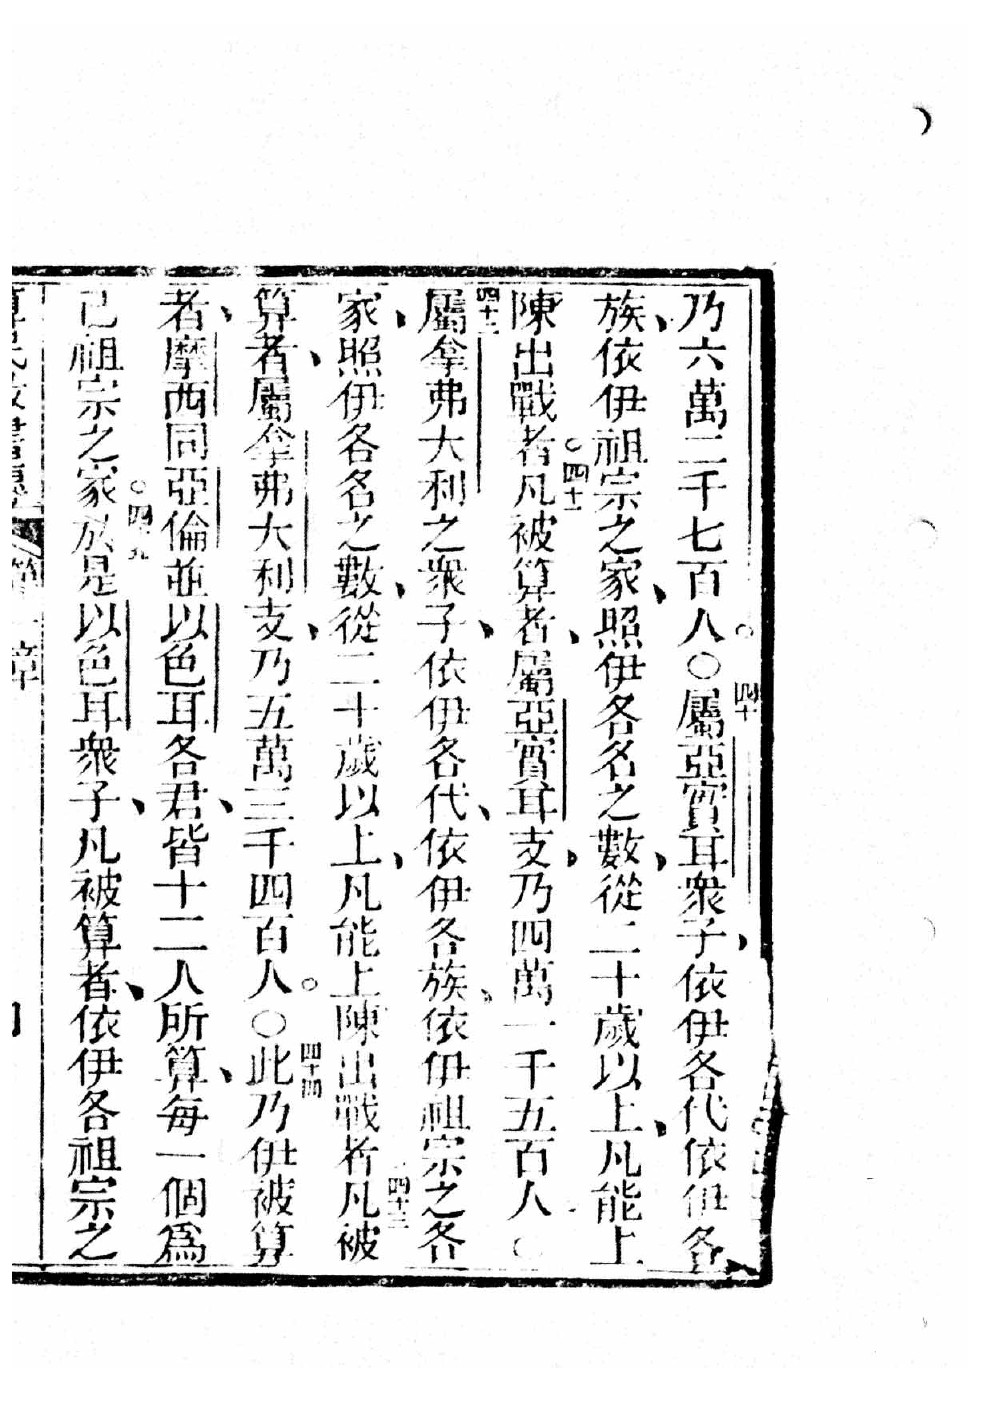 乃六萬二千七百人。○四十屬亞實耳衆子、依伊各代依伊各
族、依伊祖宗之家、照伊各名之數、從二十歲以上、凡能上
陳出戰者。○四十一凡被算者、屬亞實耳支、乃四萬一千五百人○
四十二屬拿弗大利之衆子、依伊各代、依伊各族、依伊祖宗之各
家、照伊各名之數、從二十歲以上、凡能上陳出戰者四十三凡被
算者、屬拿弗大利支、乃五萬三千四百人。○四十四此乃伊被算
者、摩西同亞倫並以色耳各君、皆十二人所算、每一個爲
己祖宗之家○四十五於是以色耳衆子、凡被算者、依伊各祖宗之